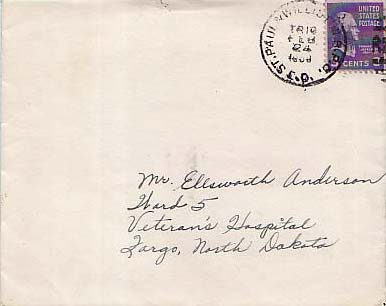 ST. PAUL
TR 16
FEB
24
UNITED
STATES
POSTAGE
CENTS
Mr. Ellsworth Anderson
Ward 5
Veteran's Hospital
Fargo, North Dakota